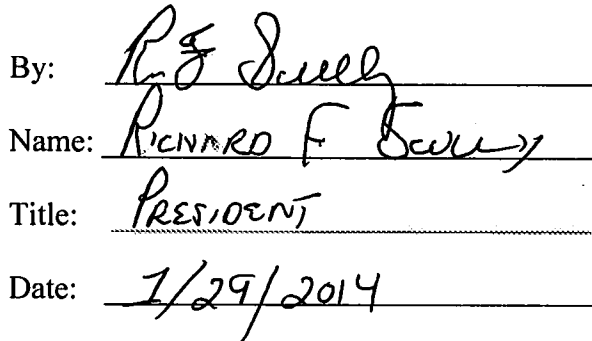 By: R F Scully
Name: RICHARD F Scully
Title: PRESIDENT
Date: 1/29/2014